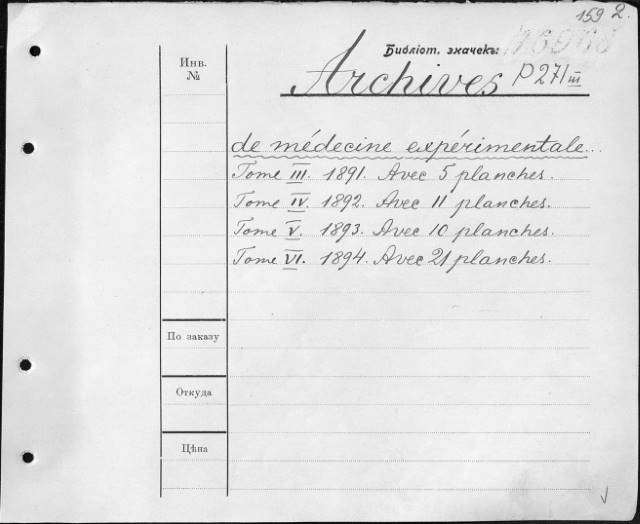 159 2.
Библіот. значекъ:
Archives P 271 III
Инв.
№
de médecine expérimentale...
Tome III. 1891. Avec 5 planches.
Tome IV. 1892. Avec 11 planches.
Tome V. 1893. Avec 10 planches.
Tome VI. 1894. Avec 21 planches.
По заказу
Откуда
Цѣна